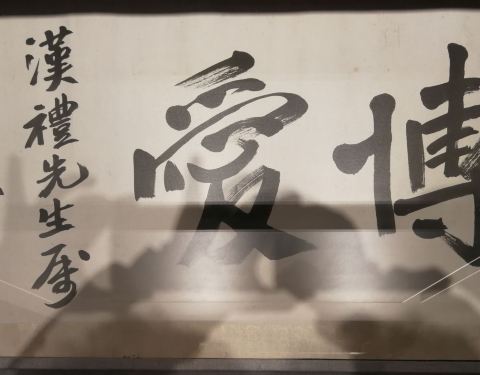 博愛
漢禮先生属